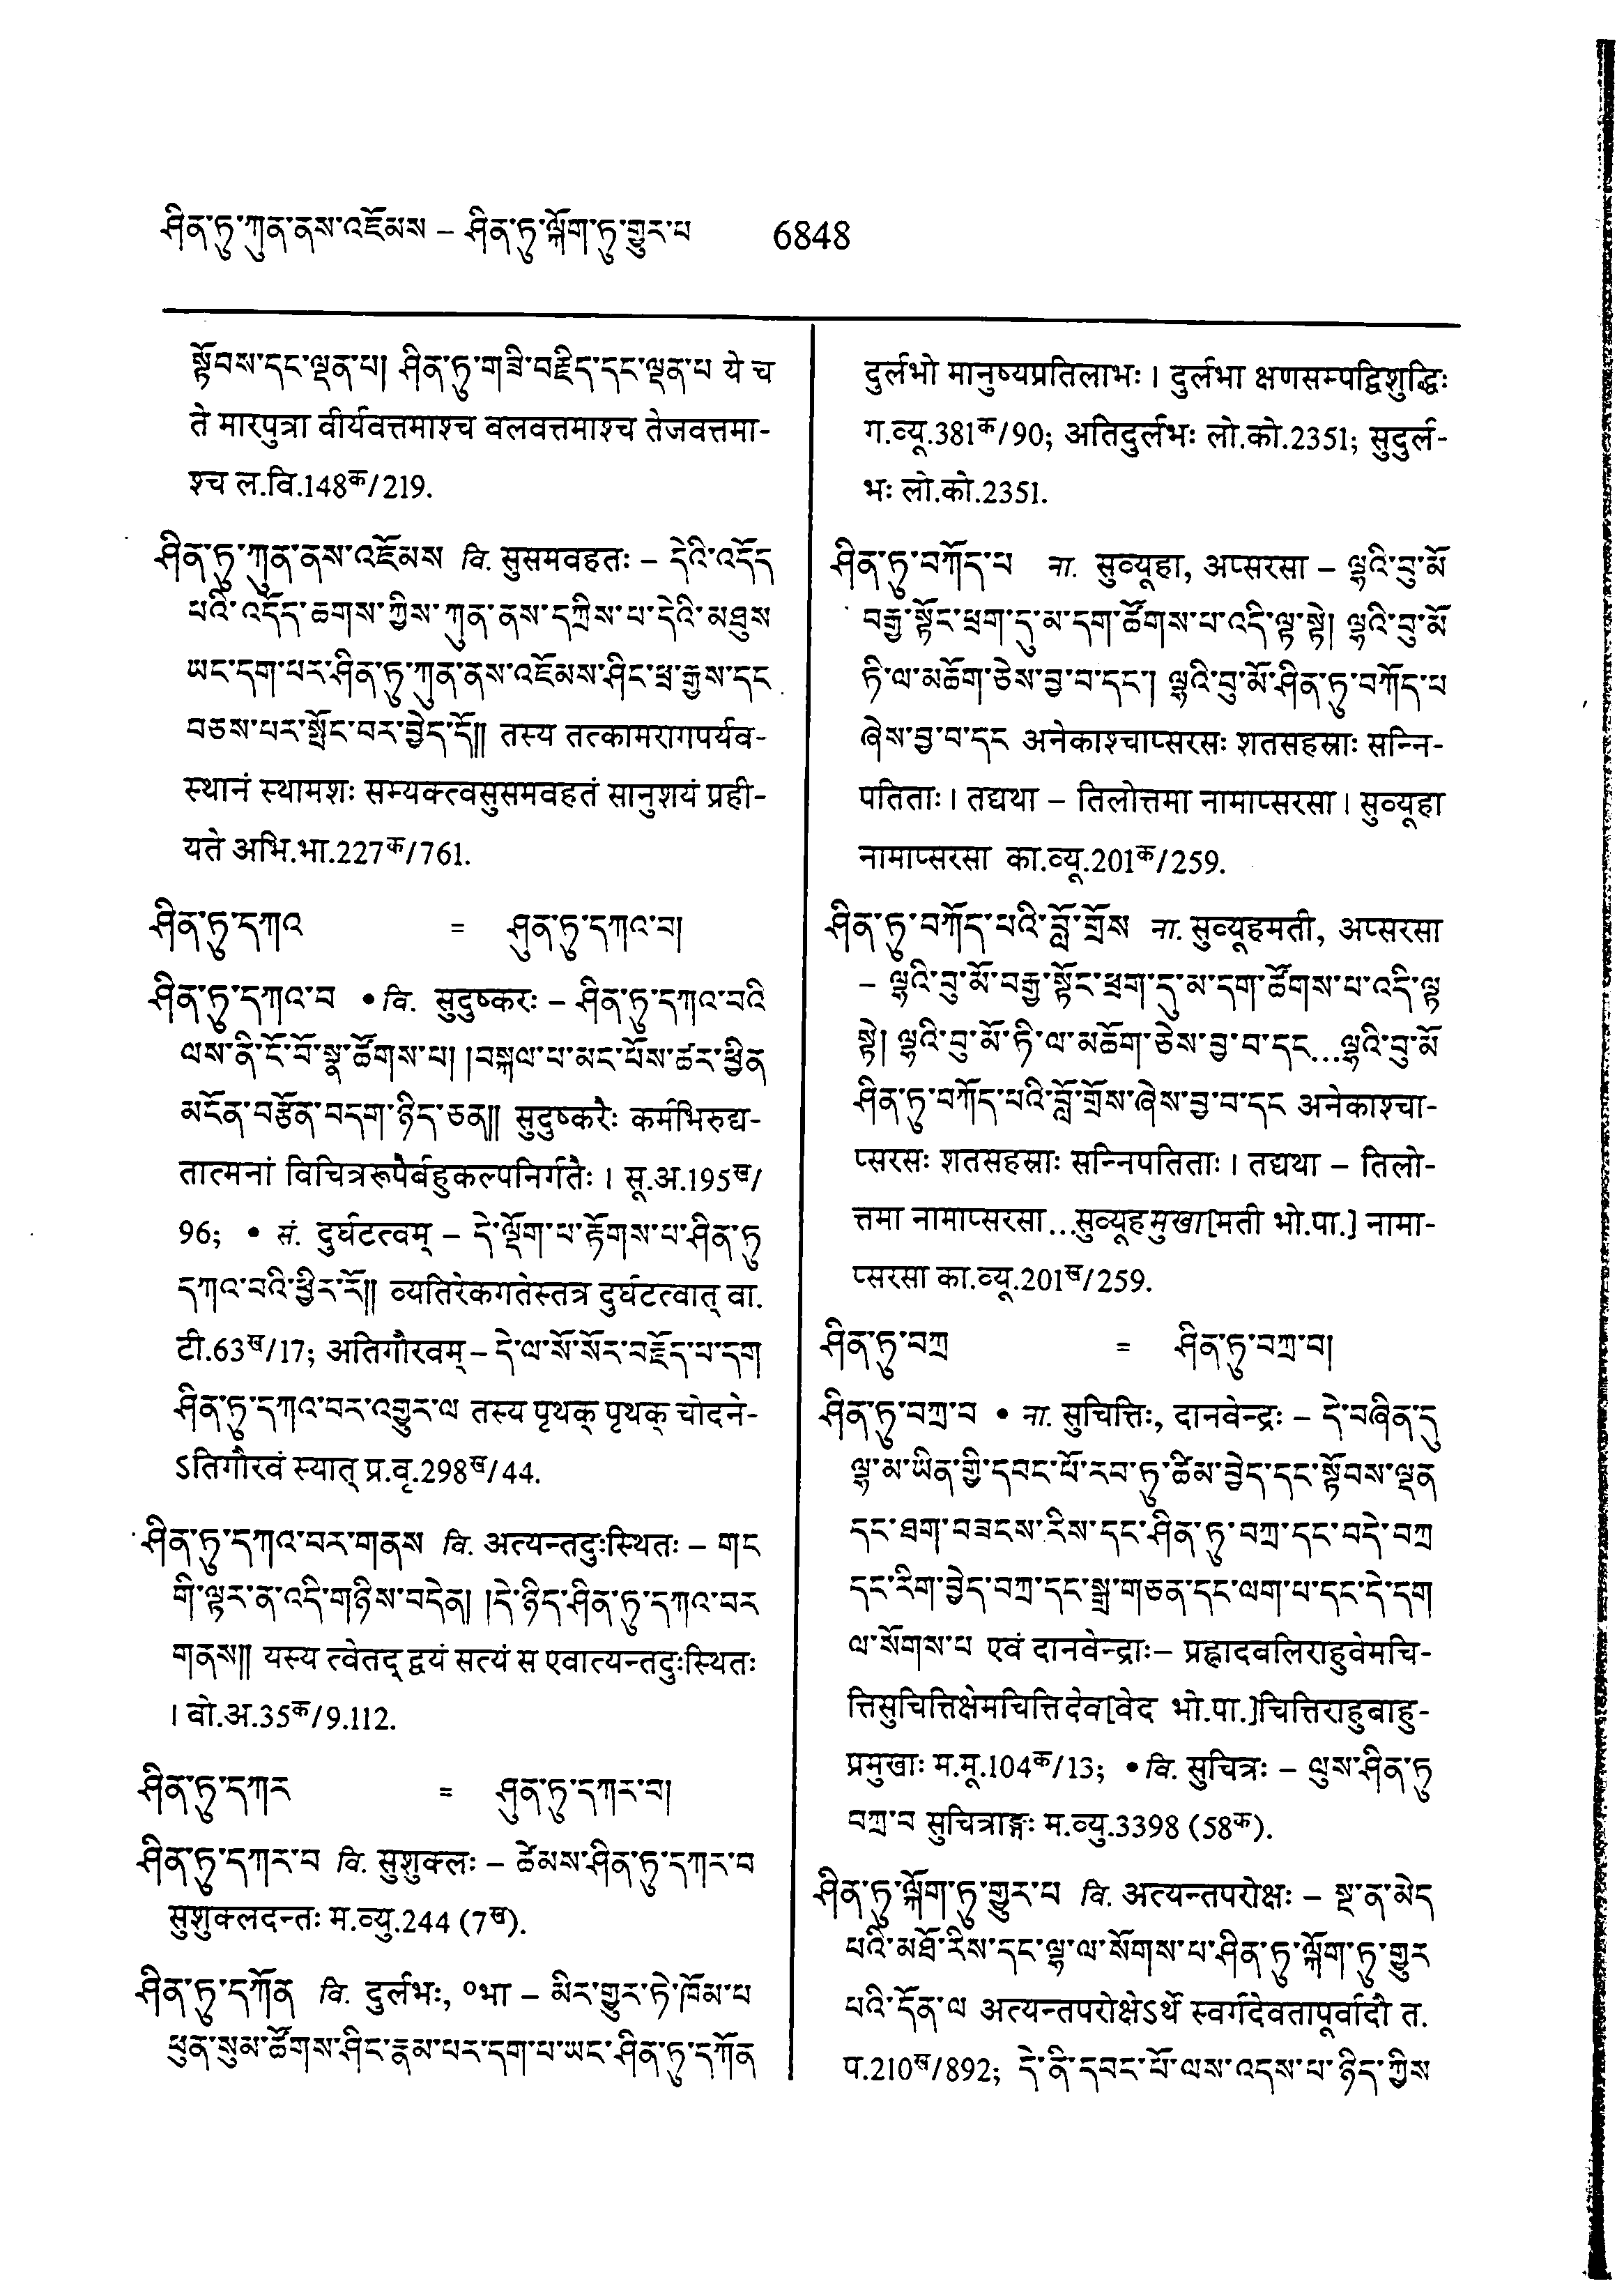 ཤིན་ཏུ་ཀུན་ནས་འཇོམས – ཤིན་ཏུ་ལྐོག་ཏུ་གྱུར་པ 6848
སྟོབས་དང་ལྡན་པ། ཤིན་ཏུ་གཟི་བརྗིད་དང་ལྡན་པ ये च
ते मारपुत्रा वीर्यवत्तमाश्च बलवत्तमाश्च तेजवत्तमा-
श्च ल.वि.148क/219.
ཤིན་ཏུ་ཀུན་ནས་འཇོམས वि. सुसमवहतः – དེའི་འདོད
པའི་འདོད་ཆགས་ཀྱིས་ཀུན་ནས་དཀྲིས་པ་དེའི་མཐུས
ཡང་དག་པར་ཤིན་ཏུ་ཀུན་ནས་འཇོམས་ཤིང་ཕྲ་རྒྱས་དང
བཅས་པར་སྤོང་བར་བྱེད་དོ།། तस्य तत्कामरागपर्यव-
स्थानं स्थामशः सम्यक्त्वसुसमवहतं सानुशयं प्रही-
यते अभि.भा.227क/761.
ཤིན་ཏུ་དཀའ = ཤུན་ཏུ་དཀའ་བ།
ཤིན་ཏུ་དཀའ་བ • वि. सुदुष्करः – ཤིན་ཏུ་དཀའ་བའི
ལས་ནི་ངོ་བོ་སྣ་ཚོགས་པ། །བསྐལ་པ་མང་པོས་ཚར་ཕྱིན
མངོན་བརྩོན་བདག་ཉིད་ཅན།། सुदुष्करैः कर्मभिरुद्य-
तात्मनां विचित्ररूपैर्बहुकल्पनिर्गतैः । सू.अ.195ख/
96; • सं. दुर्घटत्वम् – དེ་ལྡོག་པ་རྟོགས་པ་ཤིན་ཏུ
དཀའ་བའི་ཕྱིར་རོ།། व्यतिरेकगतेस्तत्र दुर्घटत्वात् वा.
टी.63ख/17; अतिगौरवम् – དེ་ལ་སོ་སོར་བརྗོད་པ་དག
ཤིན་ཏུ་དཀའ་བར་འགྱུར་ལ तस्य पृथक् पृथक् चोदने-
ऽतिगौरवं स्यात् प्र.वृ.298ख/44.
ཤིན་ཏུ་དཀའ་བར་གནས वि. अत्यन्तदुःस्थितः – གང
གི་ལྟར་ན་འདི་གཉིས་བདེན། །དེ་ཉིད་ཤིན་ཏུ་དཀའ་བར
གནས།། यस्य त्वेतद् द्वयं सत्यं स एवात्यन्तदुःस्थितः
। बो.अ.35क/9.112.
ཤིན་ཏུ་དཀར = ཤུན་ཏུ་དཀར་བ།
ཤིན་ཏུ་དཀར་བ वि. सुशुक्लः – ཚེམས་ཤིན་ཏུ་དཀར་བ
सुशुक्लदन्तः म.व्यु.244 (7ख).
ཤིན་ཏུ་དཀོན वि. दुर्लभः, ०भा – མིར་གྱུར་ཏེ་ཁོམ་པ
ཕུན་སུམ་ཚོགས་ཤིང་རྣམ་པར་དག་པ་ཡང་ཤིན་ཏུ་དཀོན
दुर्लभो मानुष्यप्रतिलाभः । दुर्लभा क्षणसम्पद्विशुद्धिः
ग.व्यू.381क/90; अतिदुर्लभः लो.को.2351; सुदुर्ल-
भः लो.को.2351.
ཤིན་ཏུ་བཀོད་པ ना. सुव्यूहा, अप्सरसा – ལྷའི་བུ་མོ
བརྒྱ་སྟོང་ཕྲག་དུ་མ་དག་ཚོགས་པ་འདི་ལྟ་སྟེ། ལྷའི་བུ་མོ
ཏི་ལ་མཆོག་ཅེས་བྱ་བ་དང་། ལྷའི་བུ་མོ་ཤིན་ཏུ་བཀོད་པ
ཞེས་བྱ་བ་དང अनेकाश्चाप्सरसः शतसहस्राः सन्नि-
पतिताः । तद्यथा – तिलोत्तमा नामाप्सरसा । सुव्यूहा
नामाप्सरसा का.व्यू.201क/259.
ཤིན་ཏུ་བཀོད་པའི་བློ་གྲོས ना. सुव्यूहमती, अप्सरसा
– ལྷའི་བུ་མོ་བརྒྱ་སྟོང་ཕྲག་དུ་མ་དག་ཚོགས་པ་འདི་ལྟ
སྟེ། ལྷའི་བུ་མོ་ཏི་ལ་མཆོག་ཅེས་བྱ་བ་དང...ལྷའི་བུ་མོ
ཤིན་ཏུ་བཀོད་པའི་བློ་གྲོས་ཞེས་བྱ་བ་དང अनेकाश्चा-
प्सरसः शतसहस्राः सन्निपतिताः । तद्यथा – तिलो-
त्तमा नामाप्सरसा...सुव्यूहमुखा[मती भो.पा.] नामा-
प्सरसा का.व्यू.201ख/259.
ཤིན་ཏུ་བཀྲ = ཤིན་ཏུ་བཀྲ་བ།
ཤིན་ཏུ་བཀྲ་བ • ना. सुचित्तिः, दानवेन्द्रः – དེ་བཞིན་དུ
ལྷ་མ་ཡིན་གྱི་དབང་པོ་རབ་ཏུ་ཚིམ་བྱེད་དང་སྟོབས་ལྡན
དང་ཐག་བཟངས་རིས་དང་ཤིན་ཏུ་བཀྲ་དང་བདེ་བཀྲ
དང་རིག་བྱེད་བཀྲ་དང་སྒྲ་གཅན་དང་ལག་པ་དང་དེ་དག
ལ་སོགས་པ एवं दानवेन्द्राः– प्रह्लादबलिराहुवेमचि-
त्तिसुचित्तिक्षेमचित्तिदेव[वेद भो.पा.]चित्तिराहुबाहु-
प्रमुखाः म.मू.104क/13; • वि. सुचित्रः – ལུས་ཤིན་ཏུ
བཀྲ་བ सुचित्राङ्गः म.व्यु.3398 (58क).
ཤིན་ཏུ་ལྐོག་ཏུ་གྱུར་པ वि. अत्यन्तपरोक्षः – སྔ་ན་མེད
པའི་མཐོ་རིས་དང་ལྷ་ལ་སོགས་པ་ཤིན་ཏུ་ལྐོག་ཏུ་གྱུར
པའི་དོན་ལ अत्यन्तपरोक्षेऽर्थे स्वर्गदेवतापूर्वादौ त.
प.210ख/892; དེ་ནི་དབང་པོ་ལས་འདས་པ་ཉིད་ཀྱིས